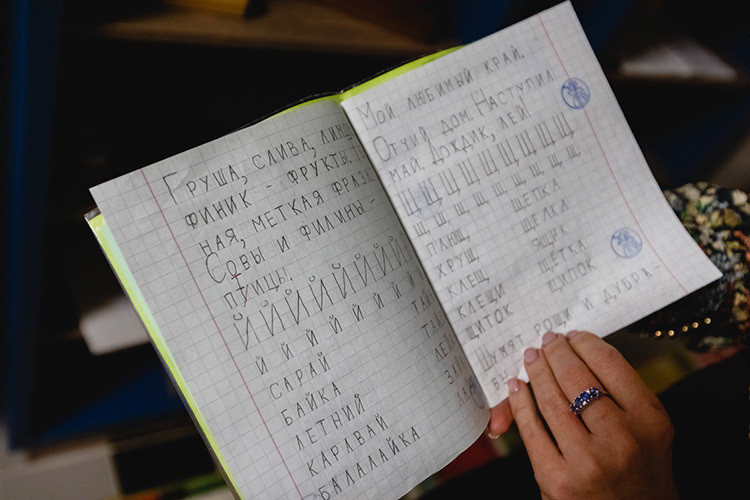 ГРУША, СЛИВА,
ФИНИК - ФРУКТЫ.
НАЯ, МЕТКАЯ ФРАЗ
СОВЫ И ФИЛИНЫ -
ПТИЦЫ.
Й Й Й Й Й Й Й Й
Й Й Й Й Й Й Й
САРАЙ
БАЙКА
ЛЕТНИЙ
КАРАВАЙ
БАЛАЛАЙКА
МОЙ ЛЮБИМЫЙ КРАЙ.
ОТЧИЙ ДОМ. НАСТУПИЛ
МАЙ. ДОЖДИК, ЛЕЙ!
Щ Щ Щ Щ Щ Щ Щ Щ Щ Щ
Щ Щ Щ Щ Щ Щ Щ Щ Щ
ПЛЮЩ ЩЕПКА
ХРУЩ ЩЕЛКА
КЛЕЩ ЯЩИК
КЛЕЩИ ЩЁТКА
ЩИТОК ЩИПОК
ШУМЯТ РОЩИ И ДУБРА-
ВЫ